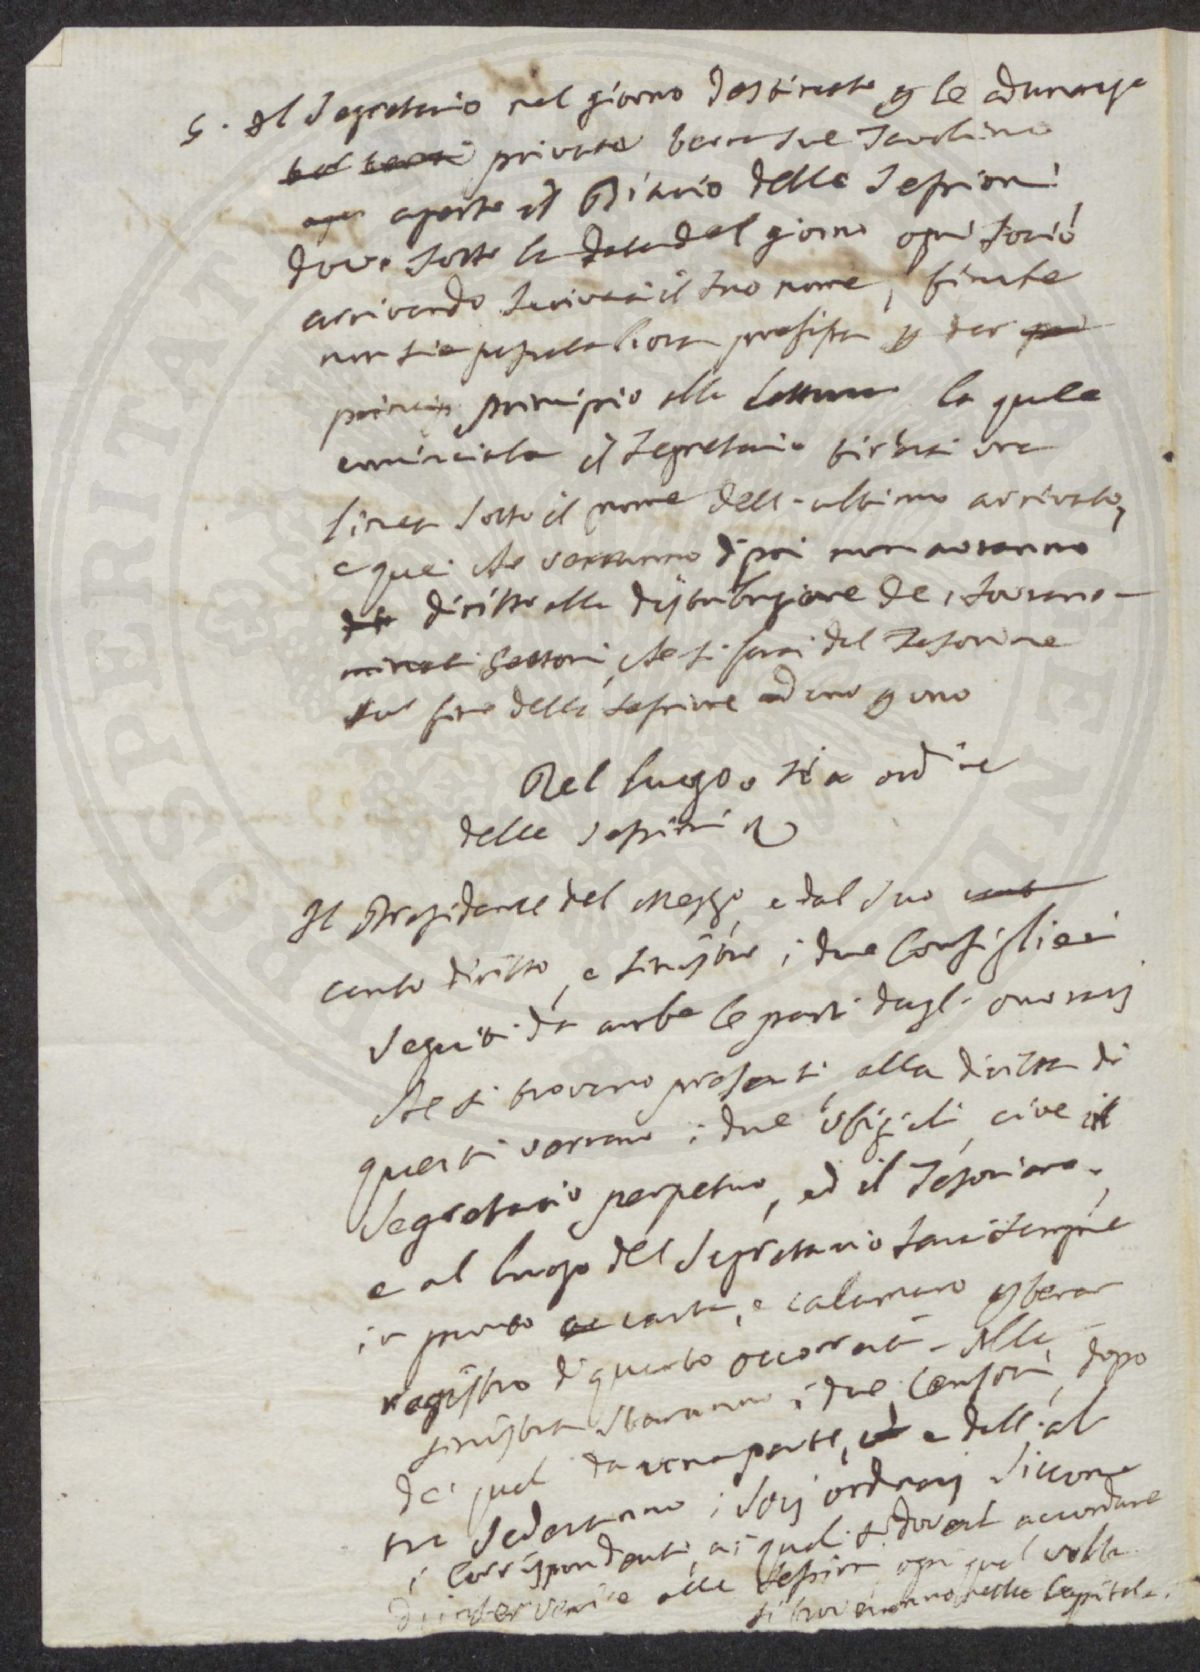 5. Il Segretario nel giorno destinato p le adunanze
private terrà sul Tavolino
aperto il Diario delle Sessioni
dove sotto la data del giorno ogni Socio
arrivando scriverà il suo nome, finche
non sia passata l'ora prefissa p dar
principio alla Lettura la quale
cominciata il Segretario tirerà una
linea sotto il nome dell'ultimo arrivato,
e quei che verranno dipoi non avranno
diritto alla distribuzione de
Gettoni, che si farà dal Tesoriere
sul fine della sessione ad uno p uno
Del luogo sia ordine
delle Sessioni
Il Presidente nel mezzo, e dal suo
canto diritto, e sinistro i due Consiglieri
seguiti da ambe le parti dagli onorarj
che si trovano presenti alla diritta di
questi verrano i due Ufiziali, cioe il
Segretario perpetuo, ed il Tesoriere,
e al luogo del Segretario sarà sempre
in pronto carta, e calamaro p tener
registro di quanto occorrerà. Alla
sinistra staranno i due Censori, dopo
de' quali da una parte, e dell'al
tra sederanno i Socj ordinarj siccome
i Corrispondenti, ai quali si dovrà accordare
d'intervenire alle Sessioni ogni qual volta
si troveranno nella Capitale.